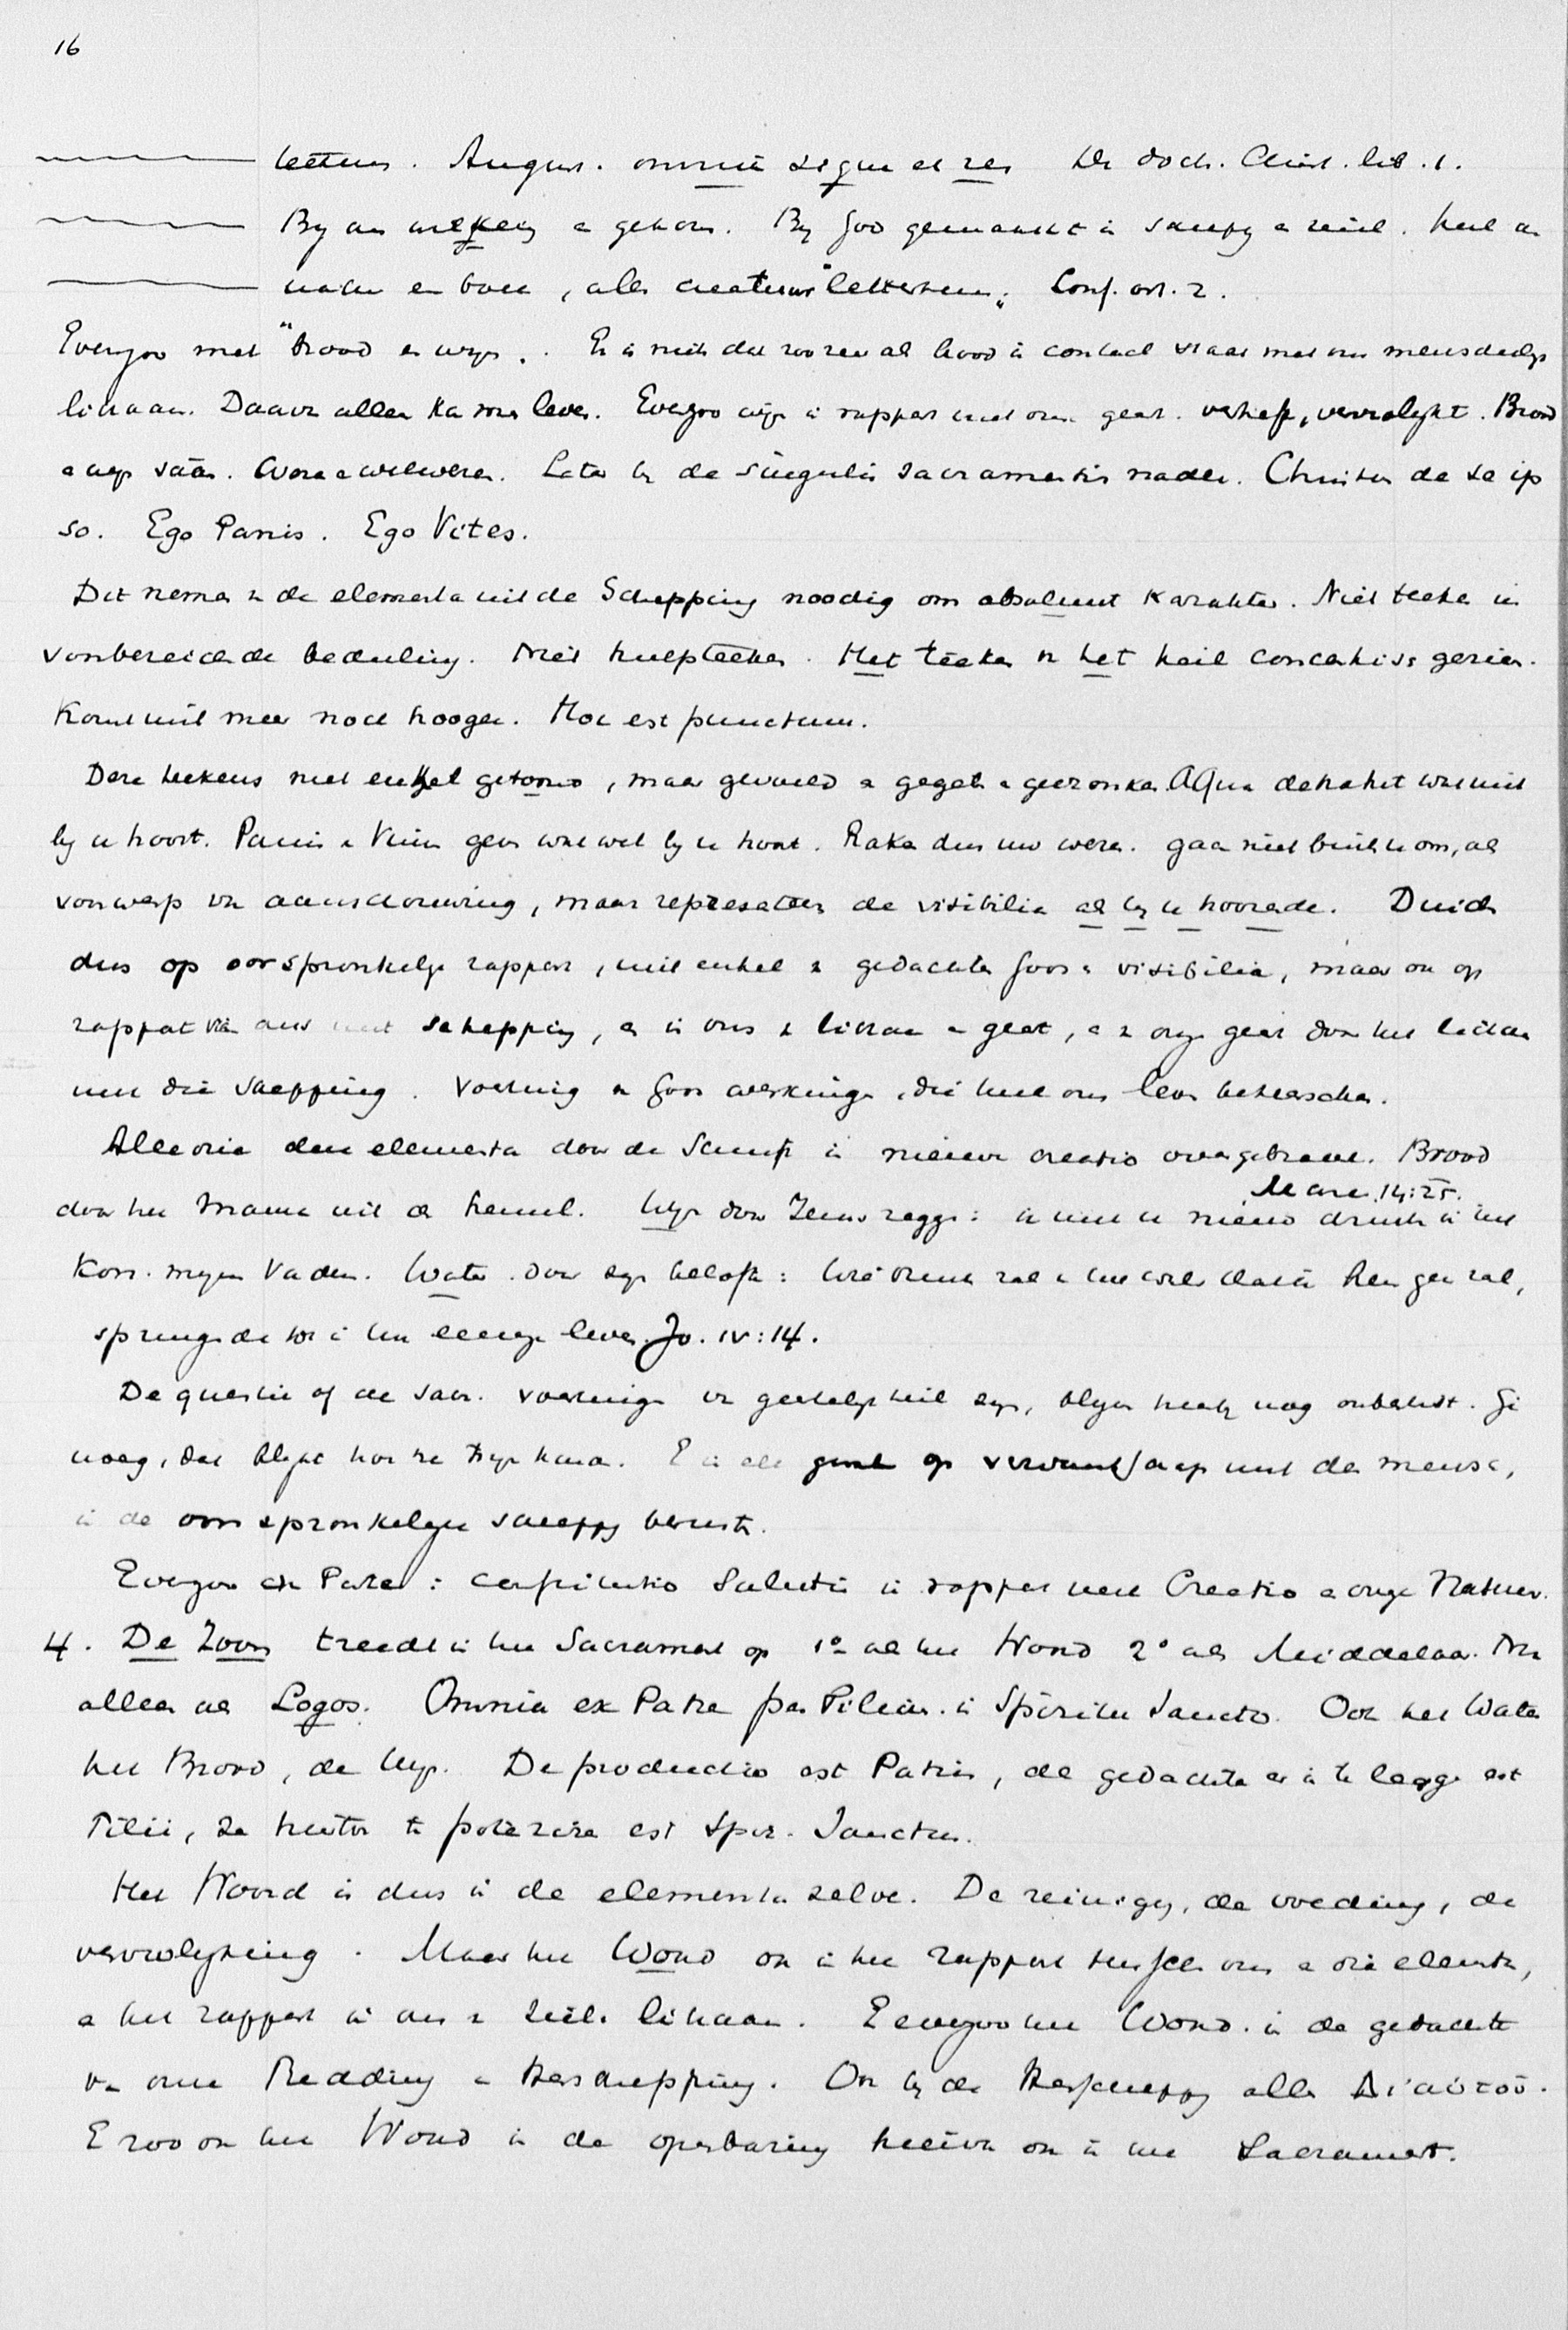 16
letters. August. omnia signa et res De doctr. Christ. lib. 1.
By ons a gehoor. By God gemaakt in schepping a
natuur en boek, alle creatuur "letteren" Conf. art. 2.
Evenzoo met "brood en wyn. Er is niets dat zoozeer als brood in contact staat met ons menschelijk
lichaam. Daarvan alleen kan men leven. Evenzoo wijn in rapport met onze geest. verheft, vervrolykt. Brood
a wyn Later by de singulis sacramentis nader. Christus de se ip
so. Ego Panis. Ego Vites.
Dit nemen v de elementa uit de Schepping noodig om absoluut karakter. Niet teeken in
voorbereidende bedeeling. Niet hulpteeken. Het teeken v het heil concentrisch gezien.
Komt niet meer noch hooger. Hoc est punctum.
Deze teekens niet enkel getoond, maar gevoeld a gegeten a gedronken. Aqua detrahit wat niet
by u hoort. Panis a Vinum geven wat wel by u hoort. Raken dus uw wezen. gaan niet buiten u om, als
voorwerp van aanschouwing, maar representeeren de visibilia als by u hoorende. Duiden
dus op oorspronkelijk rapport, niet enkel v gedachten Gods a visibilia, maar ook op
rapport van ons met schepping, a in ons v lichaam a geest, a v onze geest door het lichaam
met die schepping. Voertuig v Gods werkingen, die heel ons leven beheerschen.
Alle drie deze elementa door de Schrift in nieuwe creatio overgebracht. Brood
Marc. 14:25.
door het Manna uit de hemel. Wyn door Jezus zeggen: ik met u nieuw drink in het
Kon. mijns Vaders. Water door zyn belofte: Wie drinkt van het water dat ik hem geven zal,
springende tot in het eeuwige leven. Jo. IV:14.
De questie of de sacr. voertuigen van geestelijk heil zyn, blijve hierby nog onbeslist. Ge
noeg, dat blykt hoe ze zyn kunnen. E in elk geval op verwantschap met den mensch,
in de oorspronkelyke schepping berust.
Evenzoo ex Patre: constitutio Salutis in rapport met Creatio a onze Natuur.
4. De Zoon treedt in het Sacrament op 1° als het Woord 2° als Middelaar. Nu
alleen als Logos. Omnia ex Patre per Filium in Spiritu Sancto. Ook het Water
het Brood, de Wyn. De productio est Patris, de gedachte er in te leggen est
Filii, ze te est Spir. Sanctus.
Het Woord is dus in de elementa zelve. De reiniging, de voeding, de
vervrolyking. Maar het Woord ook in het rapport tusschen ons a die elementa,
a het rapport in ons v ziel a lichaam. Evenzoo het Woord in de gedachte
v onze Redding a Herschepping. Ook by de Herschepping alles Δι' αὐτοῦ.
E zoo ook het Woord in de openbaring hiervan ook in het Sacrament.